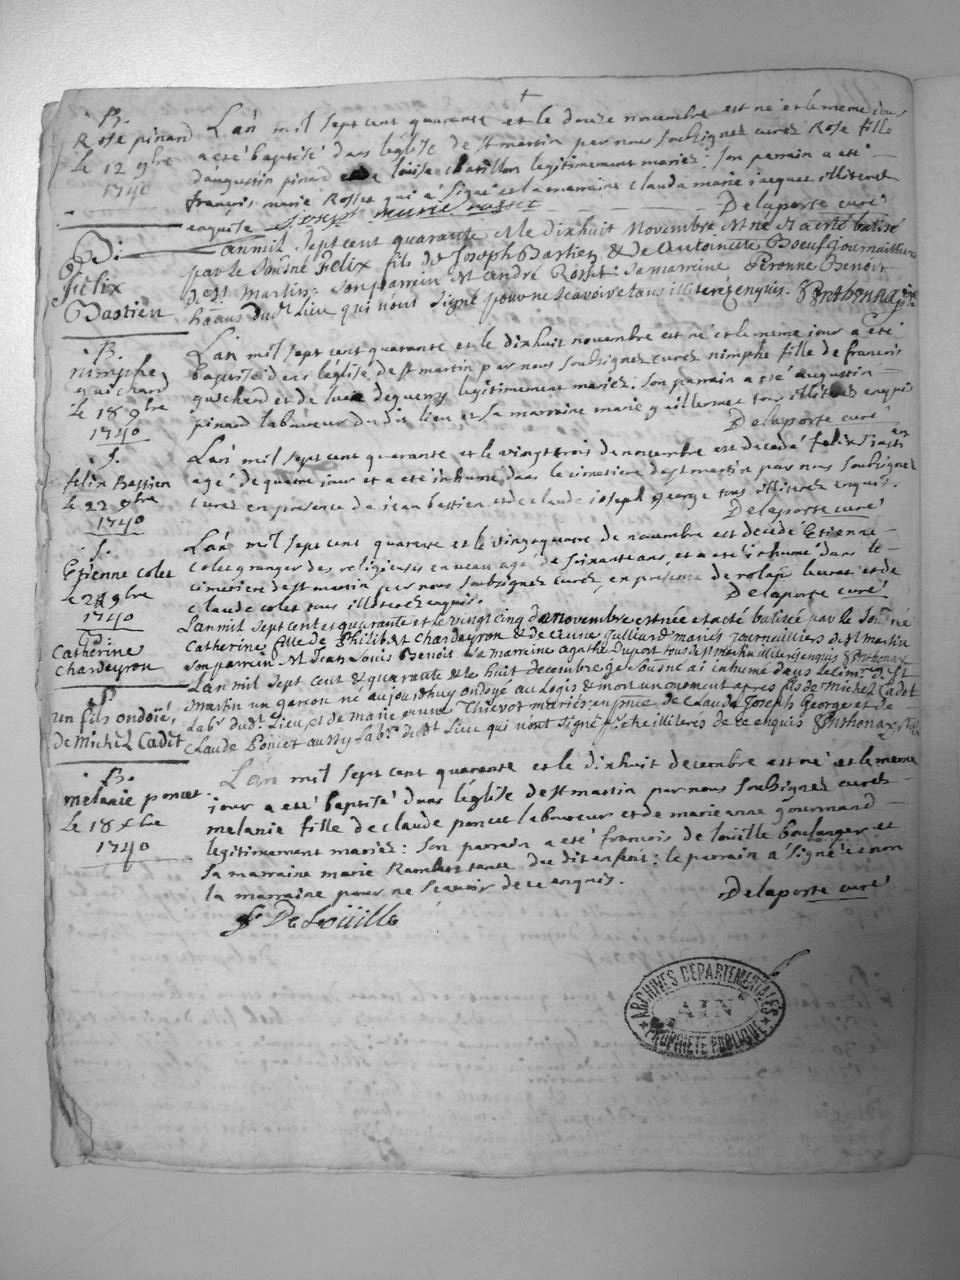 B.
Rose pinard
le 12 9bre
1740
L'an mil sept cent quarante et le douze novembre est né et le meme jour
a eté baptisé dans l'église de st martin par nous soubsignez curez Rose fille
d'augustin pinard et de louise chatillon legitimement mariez : son parrain a eté
françois marie Rosset qui a signé et la marraine claudamarie jacquet illiteret
enquise Joseph marie rosset Delaporte curé
B:
Felix
Bastien
L'an mil sept cent quarante et le dixhuit Novembre est né et a été batisé
par le sousné Felix fils de Joseph Bastien & de Antoinette Boeuf journailliers
de st Martin: son parrain st André Rosset: sa marraine Peronne Benoit
ha͠ans dud. Lieu qui n'ont signé pour ne scavoir etans illiterez enquis.
B.
nimphe
guichard
le 18 9bre
1740
L'an mil sept cent quarante et le dixhuit novembre est né et le meme jour a eté
baptisé dans l'église de st martin par nous soubsignez curez nimphe fille de francois
guichard et de legitimement mariez: son parrain a eté augustin
pinard laboureur dudit lieu et sa marraine marie guillermet tous illiterez enquis
Delaporte curé
S.
felix Bastien
le 22 9bre
1740
L'an mil sept cent quarante et le vingt trois de novembre est decedé felix Bastien
agé de quatre jour et a eté inhumé dans le cimetiere de st martin par nous soubsignez
curez en presence de jean bastien et de claude joseph george tous illiterez enquis.
Delaporte curé
S.
Etienne colet
le 24 9bre
1740
L'an mil sept cent quarante et le vingt quatre de novembre est decedé Etienne
colet granger des religieuses agé de soixante ans, et a eté inhumé dans le
cimetiere de st martin par nous soubsignez curez en presence de et de
claude colet tous illiterez enquis. Delaporte curé
Catherine
Chardeyron
L'an mil sept cent et quarante et le vingt cinq de novembre est née et a eté batisée par le sousné
Catherine fille de Philibert Chardeyron & de Juilliard mariés journailliers de st Martin
son parrain st Jean Louis Benoit sa marreine agathe Dupont tous de st martin illiterez enquis
un fils ondoié,
de Michel Cadet
L'an mil sept cent & quarante & le huit decembre je sousné ai inhumé dans le cimre de st
Martin un garçon né aujourdhuy ondoyé au logis & mort un moment apres fils de Michel Cadet
labr dudt Lieu, et de marie Thievot mariés en pnce de Claude Joseph George et de
Claude Poncet aussy labrs dudt Lieu qui n'ont signé p. etre illiteres de ce enquis
B.
melanie poncet
le 18 xbre
1740
L'an mil sept cent quarante et le dixhuit decembre est né et le meme
jour a eté baptisé dans l'église de st martin par nous soubsignez curez
melanie fille de claude poncet laboureur et de marieanne gourmand
legitimement mariez: son parrain a eté francois de louille boulanger et
sa marraine marie Rambert tante du dit enfent: le parrain a signé et non
la marraine pour ne scavoir de ce enquis. Delaporte curé
f DeLoüille
ARCHIVES DEPARTEMENTALES
AIN
PROPRIETE PUBLIQUE